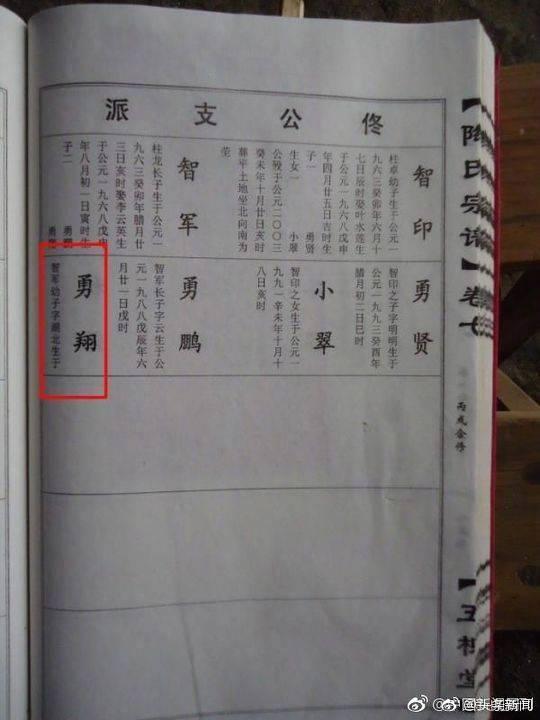 【陶氏宗谱】卷七
丙戌合修
佟公支派
智印
桂卓幼子生于公元一
九六三癸卯年六月十
七日辰时娶叶水莲生
于公元一九六八戊申
年四月廿五日吉时生
子一 勇贤
生女一 小翠
公殁于公元二〇〇三
癸未年十月廿日亥时
葬平土地坐北向南为
茔
智军
桂龙长子生于公元一
九六三癸卯年腊月廿
三日亥时娶李云英生
于公元一九六八戊申
年八月初一日寅时生
子二 勇鹏
勇贤
智印之子字明明生于
公元一九九三癸酉年
腊月初二日巳时
小翠
智印之女生于公元一
九九一辛未年十月十
八日亥时
勇鹏
智军长子字云生于公
元一九八八戊辰年六
月廿一日戌时
勇翔
智军幼子字湖北生于